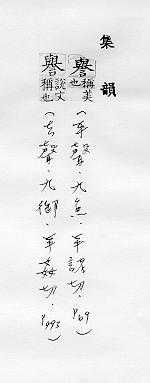 集韻
譽稱美也(平聲.九魚.羊諸切.P69)
譽說文稱也(去聲.九御.羊茹切.P493)